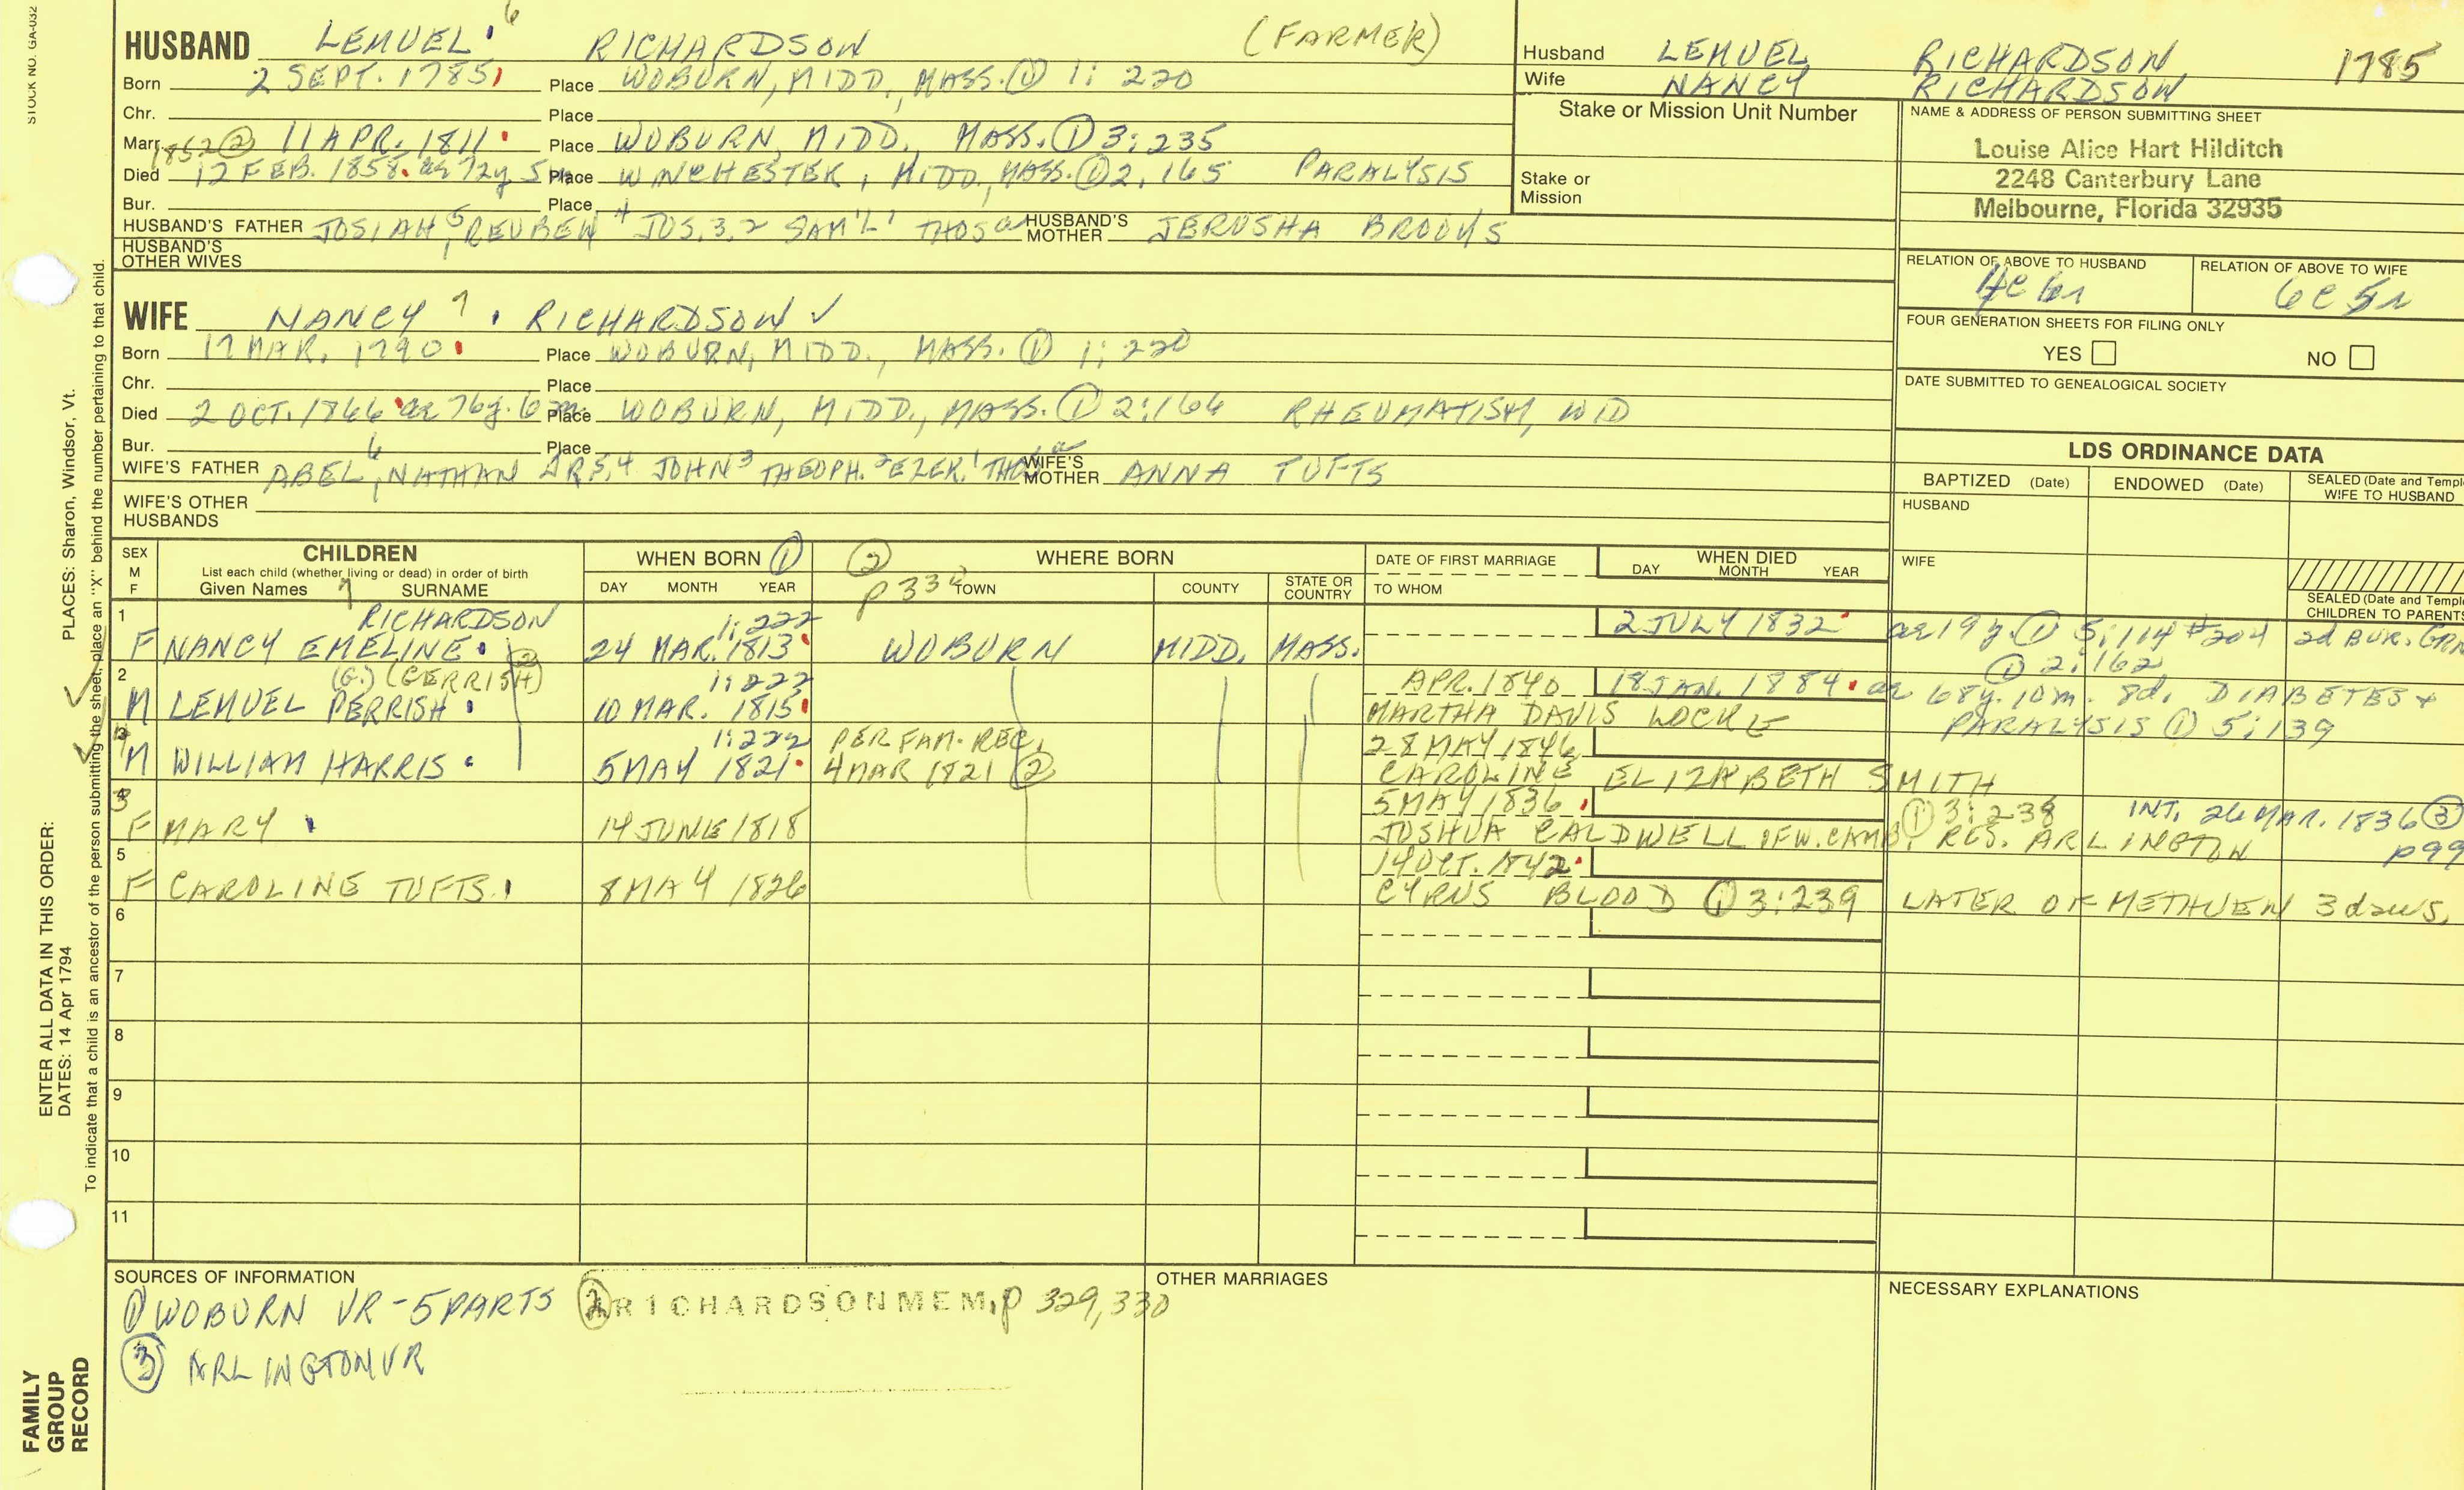 STOCK NO. GA-032
HUSBAND LEMUEL 6 RICHARDSON (FARMER)
Born 2 SEPT. 1785 Place WOBURN, MIDD., MASS. ① 1: 220
Chr. Place
Marr. 11 APR. 1811 Place WOBURN, MIDD., MASS. ① 3: 235
1852 ②
Died 17 FEB. 1858 ae 72y 5m Place WINCHESTER, MIDD., MASS. ① 2, 165 PARALYSIS
Bur. Place
HUSBAND'S FATHER JOSIAH 5, REUBEN 4 JOS. 3, 2 SAM'L 1 THOS a HUSBAND'S MOTHER JERUSHA BROOKS
HUSBAND'S OTHER WIVES
WIFE NANCY 7 RICHARDSON ✓
Born 17 MAR. 1790 Place WOBURN, MIDD., MASS. ① 1: 220
Chr. Place
Died 2 OCT. 1866 ae 76y. 6m. Place WOBURN, MIDD., MASS. ① 2:166 RHEUMATISM, WID
Bur. Place
WIFE'S FATHER ABEL 6, NATHAN 5, 4 JOHN 3 THEOPH. 2 EZEK. 1 WIFE'S MOTHER ANNA TUFTS
WIFE'S OTHER HUSBANDS
Husband LEMUEL RICHARDSON 1785
Wife NANCY RICHARDSON
Stake or Mission Unit Number
Stake or Mission
NAME & ADDRESS OF PERSON SUBMITTING SHEET
Louise Alice Hart Hilditch
2248 Canterbury Lane
Melbourne, Florida 32935
RELATION OF ABOVE TO HUSBAND RELATION OF ABOVE TO WIFE
4C 6r 6C 5r
FOUR GENERATION SHEETS FOR FILING ONLY
YES NO
DATE SUBMITTED TO GENEALOGICAL SOCIETY
LDS ORDINANCE DATA
BAPTIZED (Date) ENDOWED (Date) SEALED (Date and Templ
WIFE TO HUSBAND
HUSBAND
WIFE
SEALED (Date and Templ
CHILDREN TO PARENTS
SEX M F CHILDREN WHEN BORN ① ② WHERE BORN DATE OF FIRST MARRIAGE WHEN DIED
List each child (whether living or dead) in order of birth
Given Names 7 SURNAME DAY MONTH YEAR p 330 TOWN COUNTY STATE OR COUNTRY TO WHOM DAY MONTH YEAR
1 RICHARDSON 1: 222 2 JULY 1832 ae 19 y. ① 5: 114 #204 2d BUR. GRN
F NANCY EMELINE 24 MAR. 1813 WOBURN MIDD. MASS. ① 2:162
2 (G.) (GERRISH) ② 1: 222 APR. 1840 18 JAN. 1884 ae 68y. 10m. 8d. DIABETES +
M LEMUEL PERRISH 10 MAR. 1815 MARTHA DAVIS LOCKE PARALYSIS ① 5: 139
4 1: 222 PER FAM. REC. 28 MAY 1846
M WILLIAM HARRIS 5 MAY 1821 4 MAR 1821 ② CAROLINE ELIZABETH SMITH
3 5 MAY 1836 ① 3: 238 INT. 26 MAR. 1836 ③
F MARY 14 JUNE 1818 JOSHUA CALDWELL OF W. CAMB. RES. ARLINGTON p99
5 14 OCT. 1842
F CAROLINE TUFTS 8 MAY 1826 CYRUS BLOOD ① 3: 239 LATER OF METHUEN 3 daus.
6
7
8
9
10
11
SOURCES OF INFORMATION
① WOBURN VR - 5 PARTS ② RICHARDSON MEM, p 329, 330
③ ARLINGTON VR
OTHER MARRIAGES
NECESSARY EXPLANATIONS
ENTER ALL DATA IN THIS ORDER:
DATES: 14 Apr 1794 PLACES: Sharon, Windsor, Vt.
To indicate that a child is an ancestor of the person submitting the sheet, place an "X" behind the number pertaining to that child.
FAMILY
GROUP
RECORD